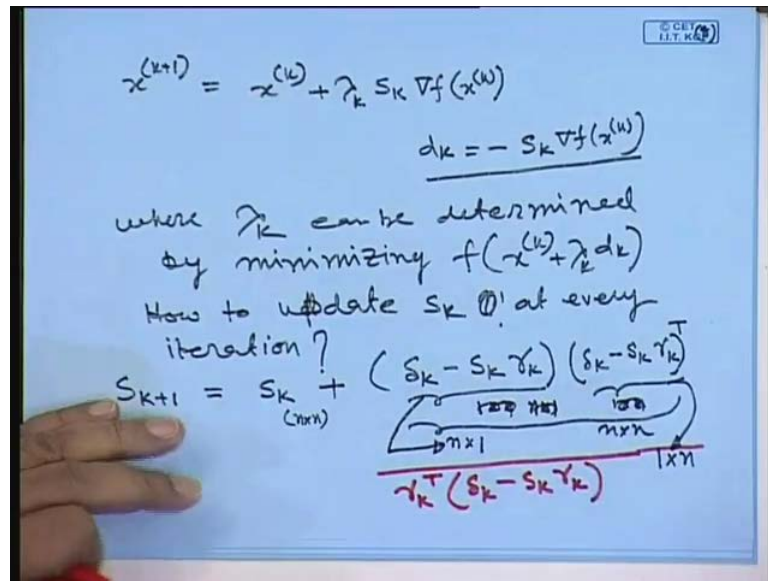 © CET
I.I.T. KGP
x^(k+1) = x^(k) + λ_k S_k ∇f(x^(k))
d_k = - S_k ∇f(x^(k))
where λ_k can be determined
by minimizing f(x^(k) + λ_k d_k)
How to update S_k at every
iteration?
S_k+1 = S_k + (δ_k - S_k γ_k) (δ_k - S_k γ_k)^T
(n×n)
n×1 n×n 1×n
γ_k^T (δ_k - S_k γ_k)